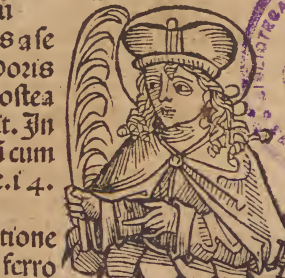 n
s a se
poris
ostea
t. In
i cum
e. 14.
tione
ferro